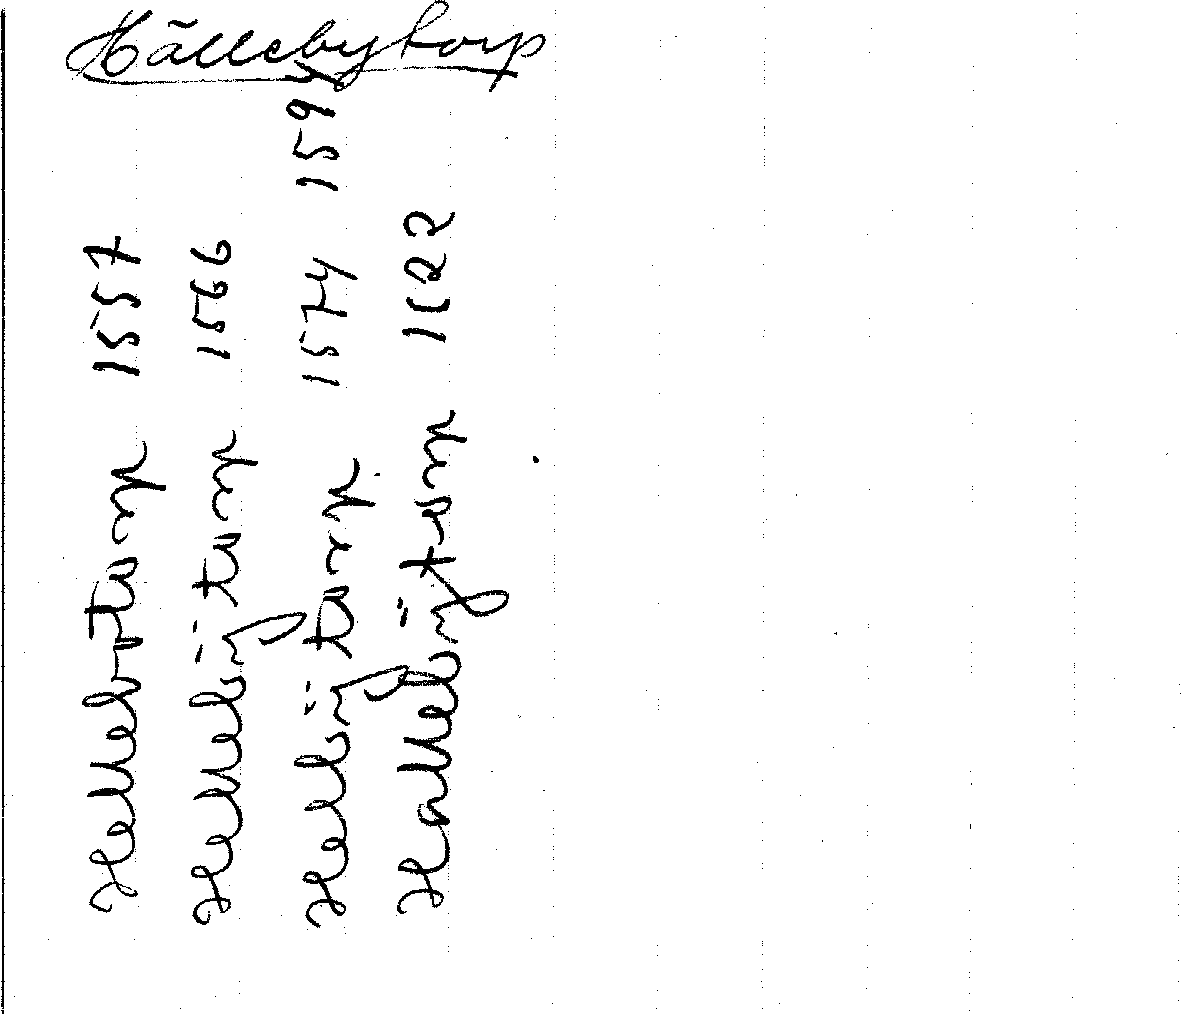 Hälleby torp
Hellebotorp 1557
Hellebÿtorp 1566
Helbÿ torp 1574 1594
Hallebÿtorp 1622